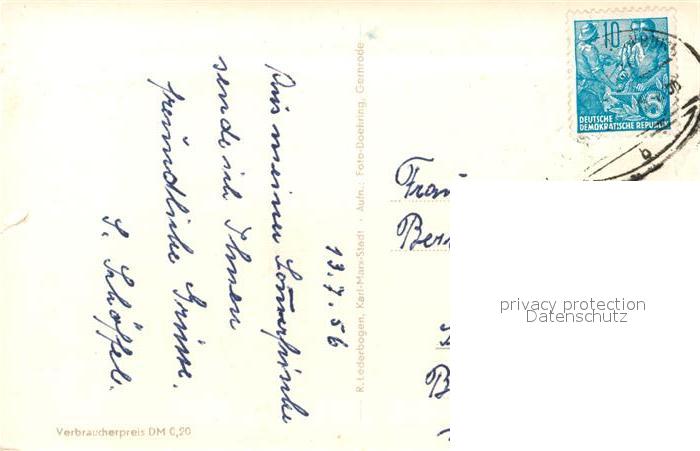 13.7.56
Aus meiner Sommerfrische
sende ich Ihnen
freundliche Grüsse.
S. Schöffel.
Verbraucherpreis DM 0,20
R. Lederbogen, Karl-Marx-Stadt · Aufn.: Foto-Doehring, Gernrode
10
DEUTSCHE
DEMOKRATISCHE REPUBLIK
b
Frau
Ber
B
privacy protection
Datenschutz